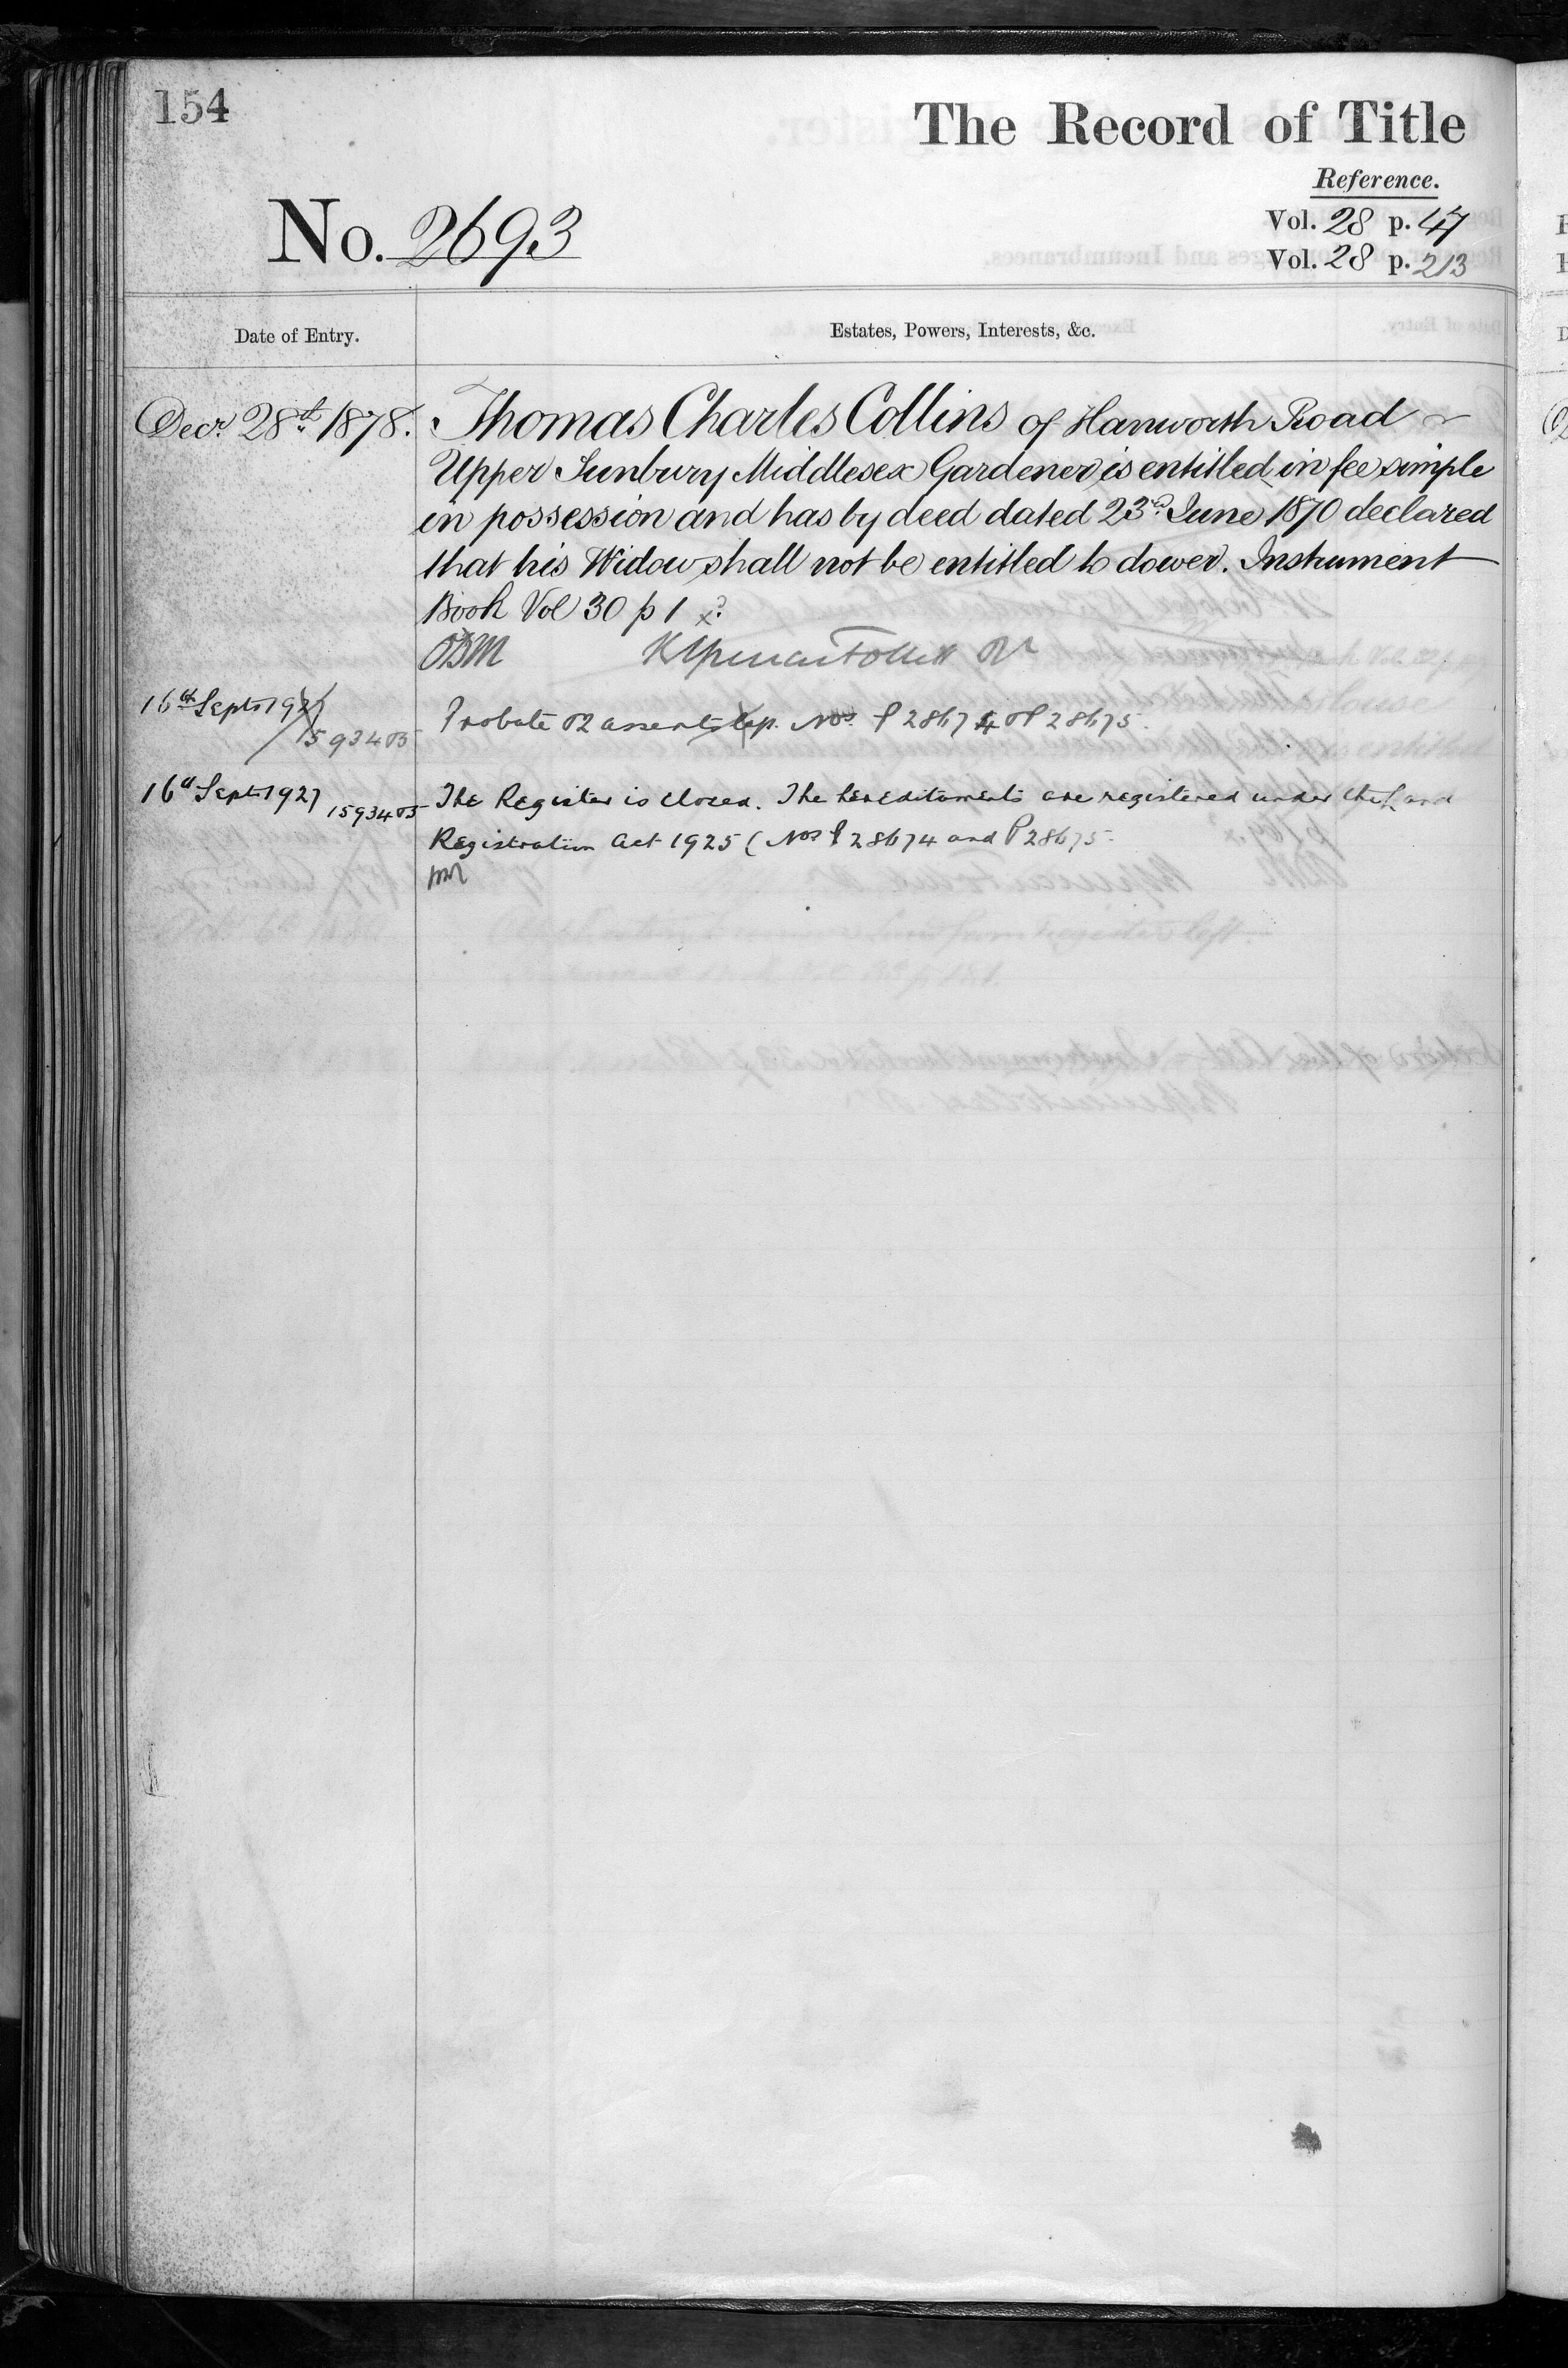 154
The Record of Title
Reference.
No. 2693
Vol. 28 p. 47
Vol. 28 p. 213
Date of Entry.
Estates, Powers, Interests, &c.
Decr. 28th 1878. Thomas Charles Collins of Hanworth Road
Upper Sunbury Middlesex Gardener is entitled in fee simple
in possession and has by deed dated 23rd June 1870 declared
that his Widow shall not be entitled to dower. Instrument
Book Vol 30 p 1 x?
16th Sept 1927
Probate or assents Nos. P 28674 or P 28675.
1593405
16th Sept 1927 1593405 The Register is closed. The hereditaments are registered under the Land
Registration Act 1925 (Nos P 28674 and P 28675.